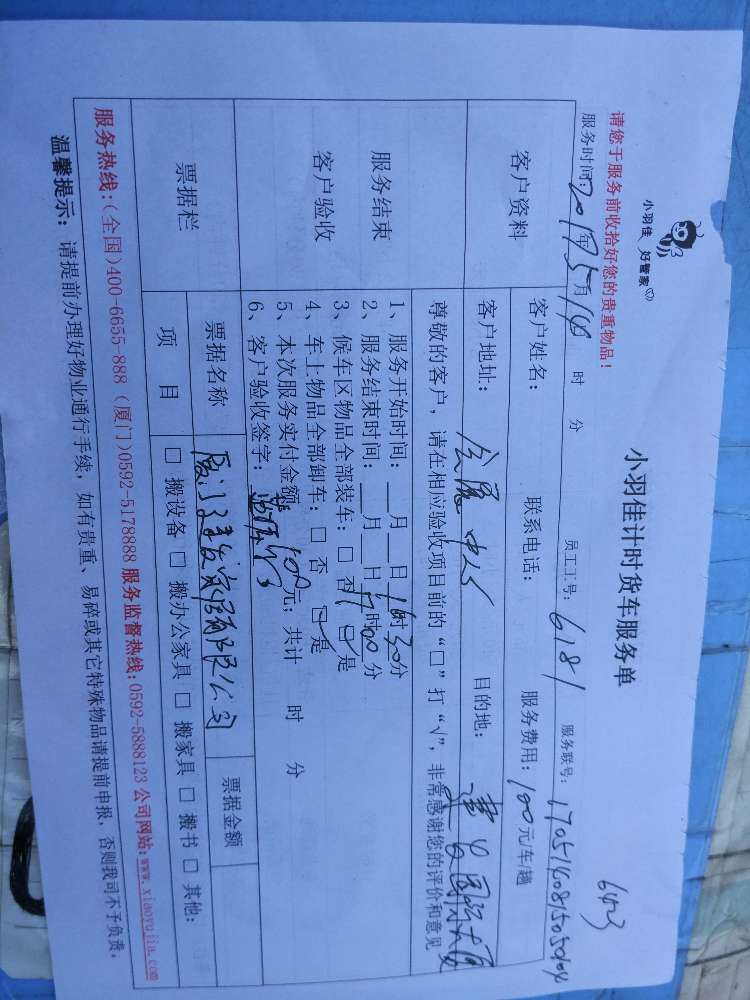 小羽佳 好管家
6423
小羽佳计时货车服务单
请您于服务前收拾好您的贵重物品！
服务时间: 2017年5月14日 时 分 员工工号: 6181 服务联号: 170514081505
客户资料
客户姓名: 联系电话: 服务费用: 100元/车/趟
客户地址: 会展中心 目的地: 建发国际大厦
服务结束
客户验收
尊敬的客户，请在相应验收项目前的“□”打“√”，非常感谢您的评价和意见
1、服务开始时间: __月__日16时30分
2、服务结束时间: __月__日17时00分
3、候车区物品全部装车: □ 否 ☑ 是
4、车上物品全部卸车: □ 否 ☑ 是
5、本次服务实付金额 100元; 共计 时 分
6、客户验收签字:
票据栏
票据名称 厦门建发 有限公司 票据金额
项 目 □ 搬设备 □ 搬办公家具 □ 搬家具 □ 搬书 □ 其他:
服务热线:(全国)400-6655-888 (厦门)0592-5178888 服务监督热线:0592-5888123 公司网站:www.xiaoyujia.com
温馨提示: 请提前办理好物业通行手续，如有贵重、易碎或其它特殊物品请提前申报，否则我司不予负责。